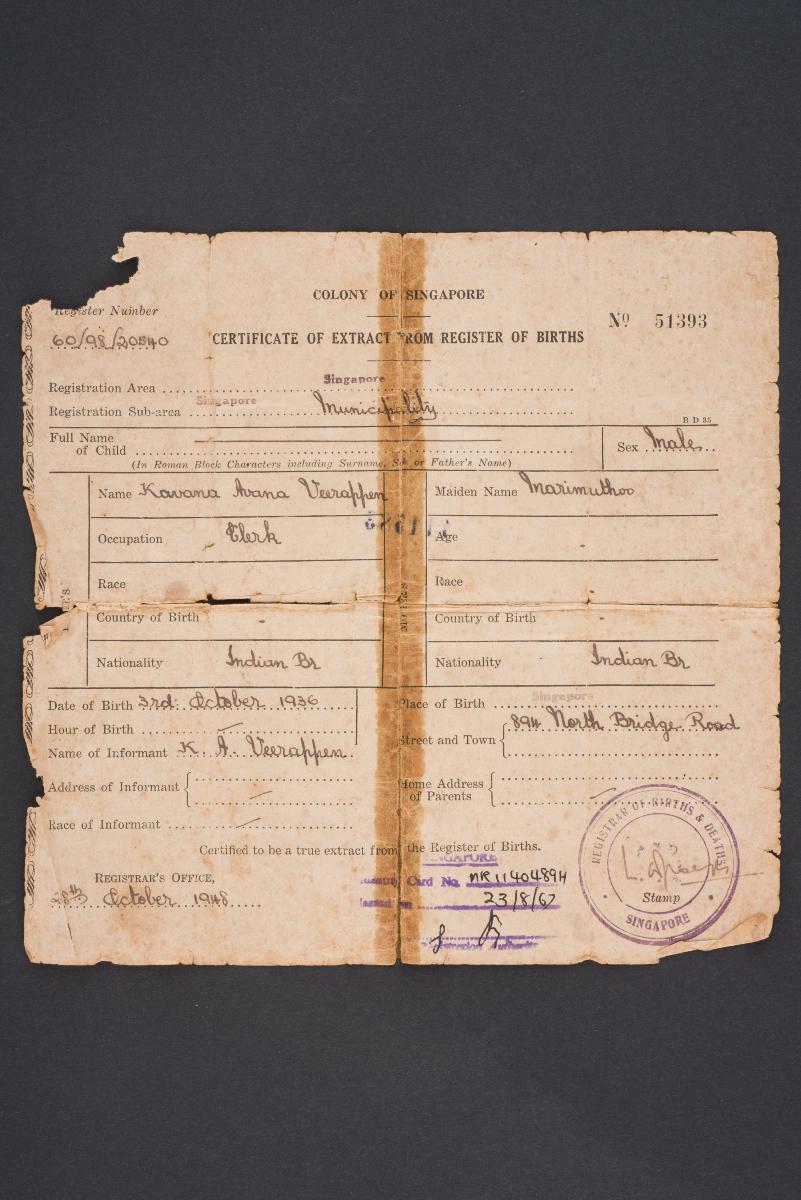 Register Number
COLONY OF SINGAPORE
Nº 51393
60/98/20540
CERTIFICATE OF EXTRACT FROM REGISTER OF BIRTHS
Registration Area Singapore
Registration Sub-area Singapore Municipality
B D 35
Full Name
of Child
Sex Male
(In Roman Block Characters including Surname, or Father's Name)
Name Kavana Avana Veerappen
Maiden Name Marimuthoo
Occupation Clerk
Age -
Race
Race
Country of Birth -
Country of Birth -
Nationality Indian Br
Nationality Indian Br
Date of Birth 3rd: October 1936
Place of Birth Singapore
Hour of Birth
Street and Town 894 North Bridge Road
Name of Informant K. A. Veerappen
Address of Informant
Home Address
of Parents
Race of Informant
Certified to be a true extract from the Register of Births.
REGISTRAR OF BIRTHS & DEATHS
SINGAPORE
Stamp
SINGAPORE
REGISTRAR'S OFFICE,
28th October 1948
Card No. MR1140489H
23/8/67